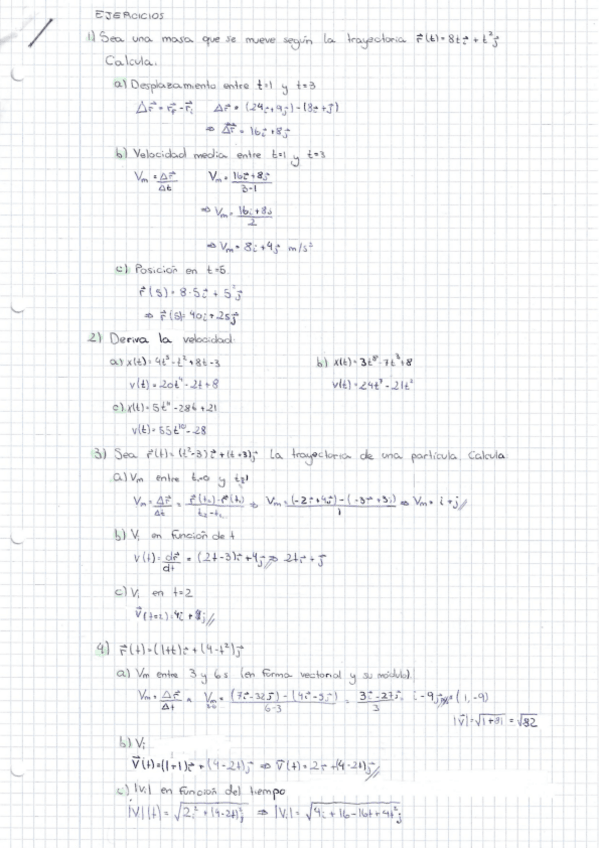 EJERCICIOS
1) Sea una masa que se mueve según la trayectoria r⃗(t)=8ti⃗+t²j⃗
Calcula.
a) Desplazamiento entre t=1 y t=3
Δr⃗=r⃗f-r⃗i Δr⃗=(24i⃗+9j⃗)-(8i⃗+j⃗)
⇒ Δr⃗=16i⃗+8j⃗
b) Velocidad media entre t=1 y t=3
Vm=Δr⃗/Δt Vm=(16i⃗+8j⃗)/(3-1)
⇒ Vm=(16i+8j)/2
⇒ Vm=8i⃗+4j⃗ m/s²
c) Posición en t=5
r⃗(5)=8·5i⃗+5²j⃗
⇒ r⃗(5)=40i+25j⃗
2) Deriva la velocidad
a) x(t)=4t⁵-t²+8t-3 b) x(t)=3t⁸-7t³+8
v(t)=20t⁴-2t+8 v(t)=24t⁷-21t²
c) x(t)=5t¹¹-28t+21
v(t)=55t¹⁰-28
3) Sea r⃗(t)=(t²-3)i⃗+(t+3)j⃗ la trayectoria de una partícula. Calcula
a) Vm entre t=0 y t=1
Vm=Δr⃗/Δt=(r⃗(t₂)-r⃗(t₁))/(t₂-t₁) ⇒ Vm=((-2i⃗+4j⃗)-(-3i⃗+3j))/1 ⇒ Vm=i+j//
b) Vi en función de t
v(t)=dr⃗/dt=(2t-3)i⃗+4j⃗ ⇒ 2ti⃗+j⃗
c) Vi en t=2
V⃗(t=2)=4i⃗+j//
4) r⃗(t)=(1+t)i⃗+(4-t²)j⃗
a) Vm entre 3 y 6s (en forma vectorial y su módulo).
Vm=Δr⃗/Δt Vm=((7i⃗-32j⃗)-(4i⃗-5j⃗))/(6-3)=(3i⃗-27j⃗)/3 i-9j (1,-9)
|V⃗|=√1+81=√82
b) Vi
V⃗(t)=(1+1)i⃗+(4-2t)j⃗ ⇒ V⃗(t)=2i⃗+(4-2t)j⃗//
c) |Vi| en función del tiempo
|V⃗|(t)=√2i²+(4-2t)²j ⇒ |Vi|=√4i+16-16t+4t²j